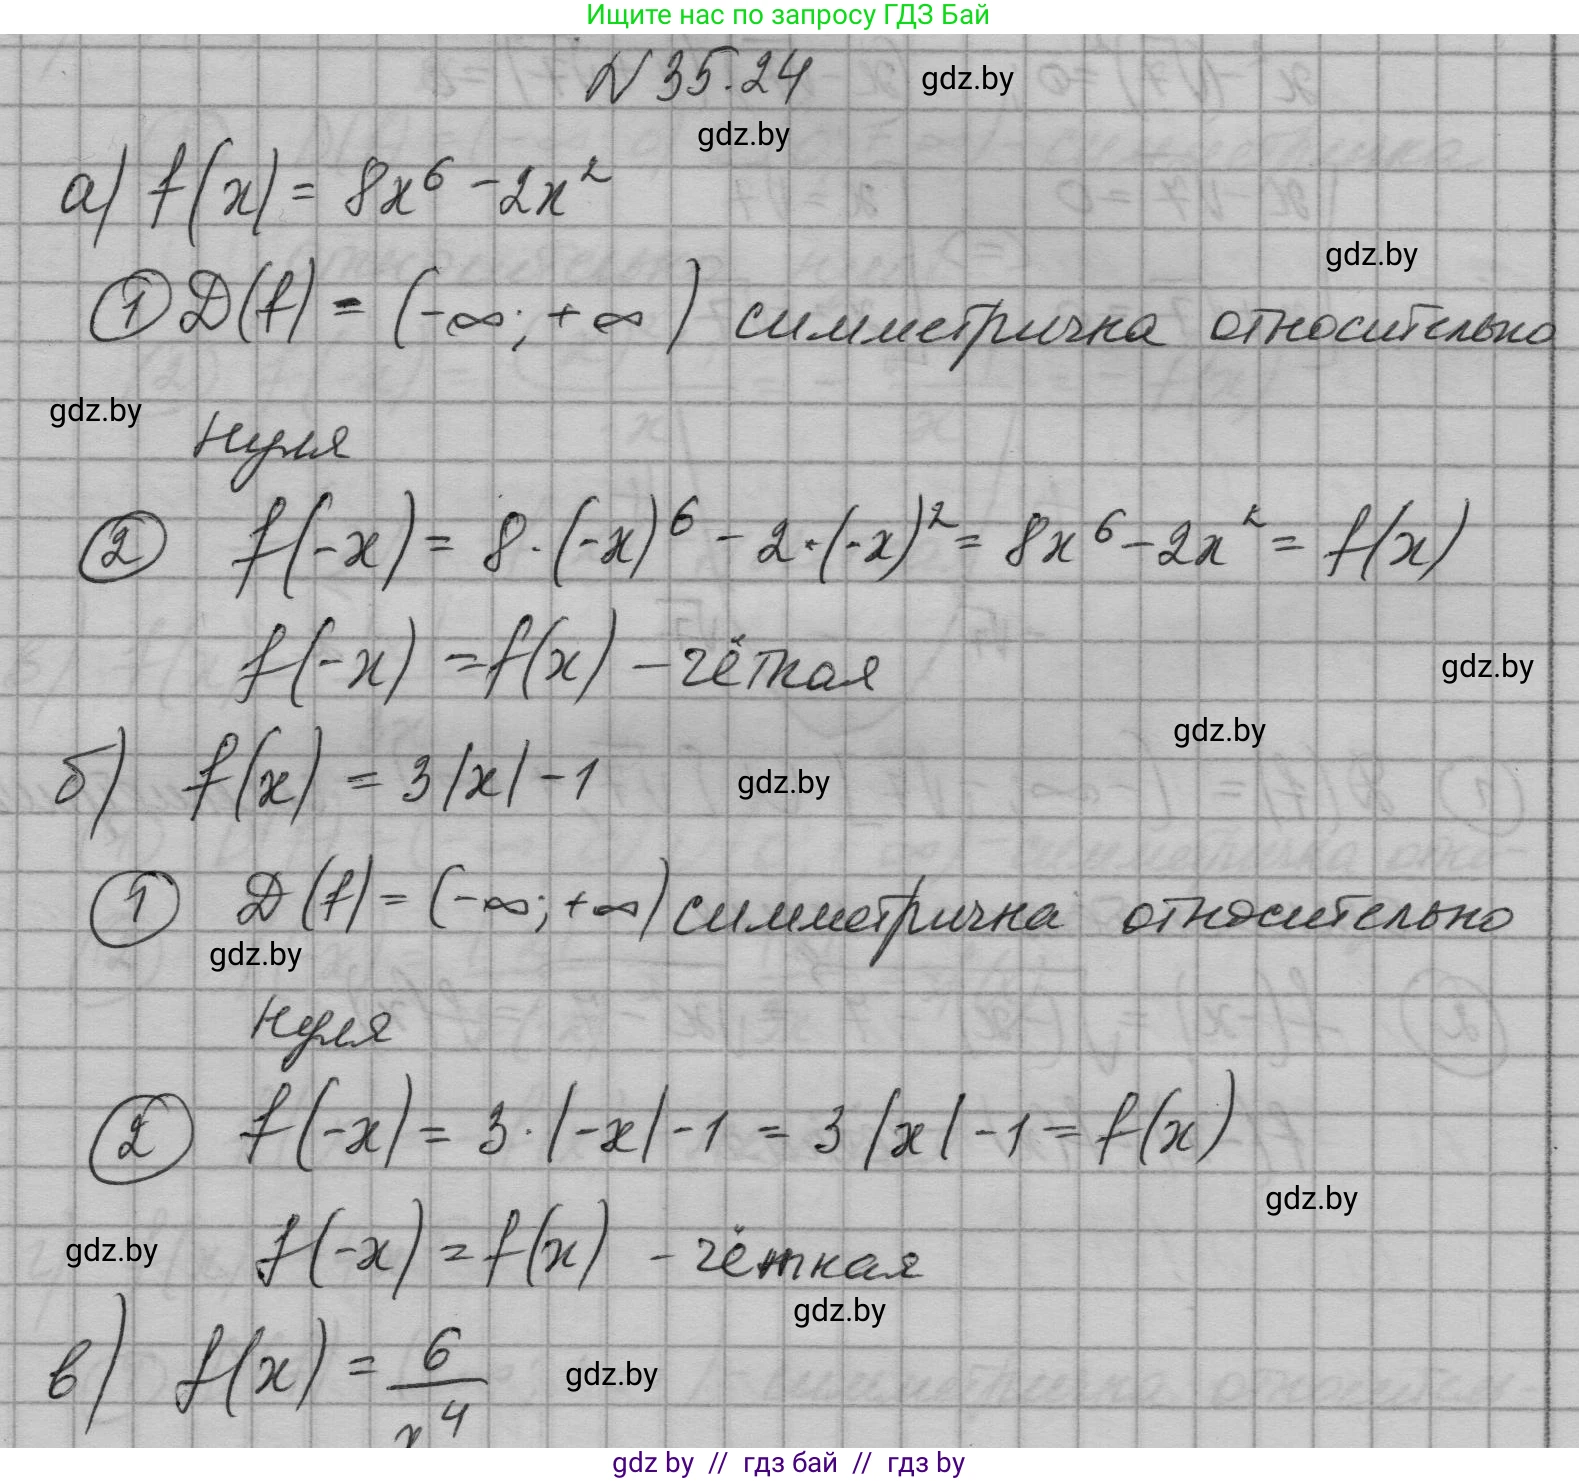 Ищите нас по запросу ГДЗ Бай
N 35.24
gdz.by
gdz.by
а) f(x) = 8x⁶ - 2x²
gdz.by
① D(f) = (-∞; +∞) симметрична относительно
gdz.by
нуля
② f(-x) = 8·(-x)⁶ - 2·(-x)² = 8x⁶ - 2x² = f(x)
f(-x) = f(x) - чётная
gdz.by
gdz.by
б) f(x) = 3|x| - 1
gdz.by
① D(f) = (-∞; +∞) симметрична относительно
gdz.by
нуля
② f(-x) = 3·|-x| - 1 = 3|x| - 1 = f(x)
gdz.by
gdz.by
f(-x) = f(x) - чётная
gdz.by
в) f(x) = 6/x⁴
gdz.by
gdz by // гдз бай // гдз by